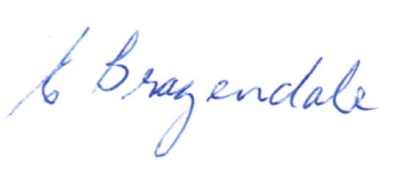 E Bragendale